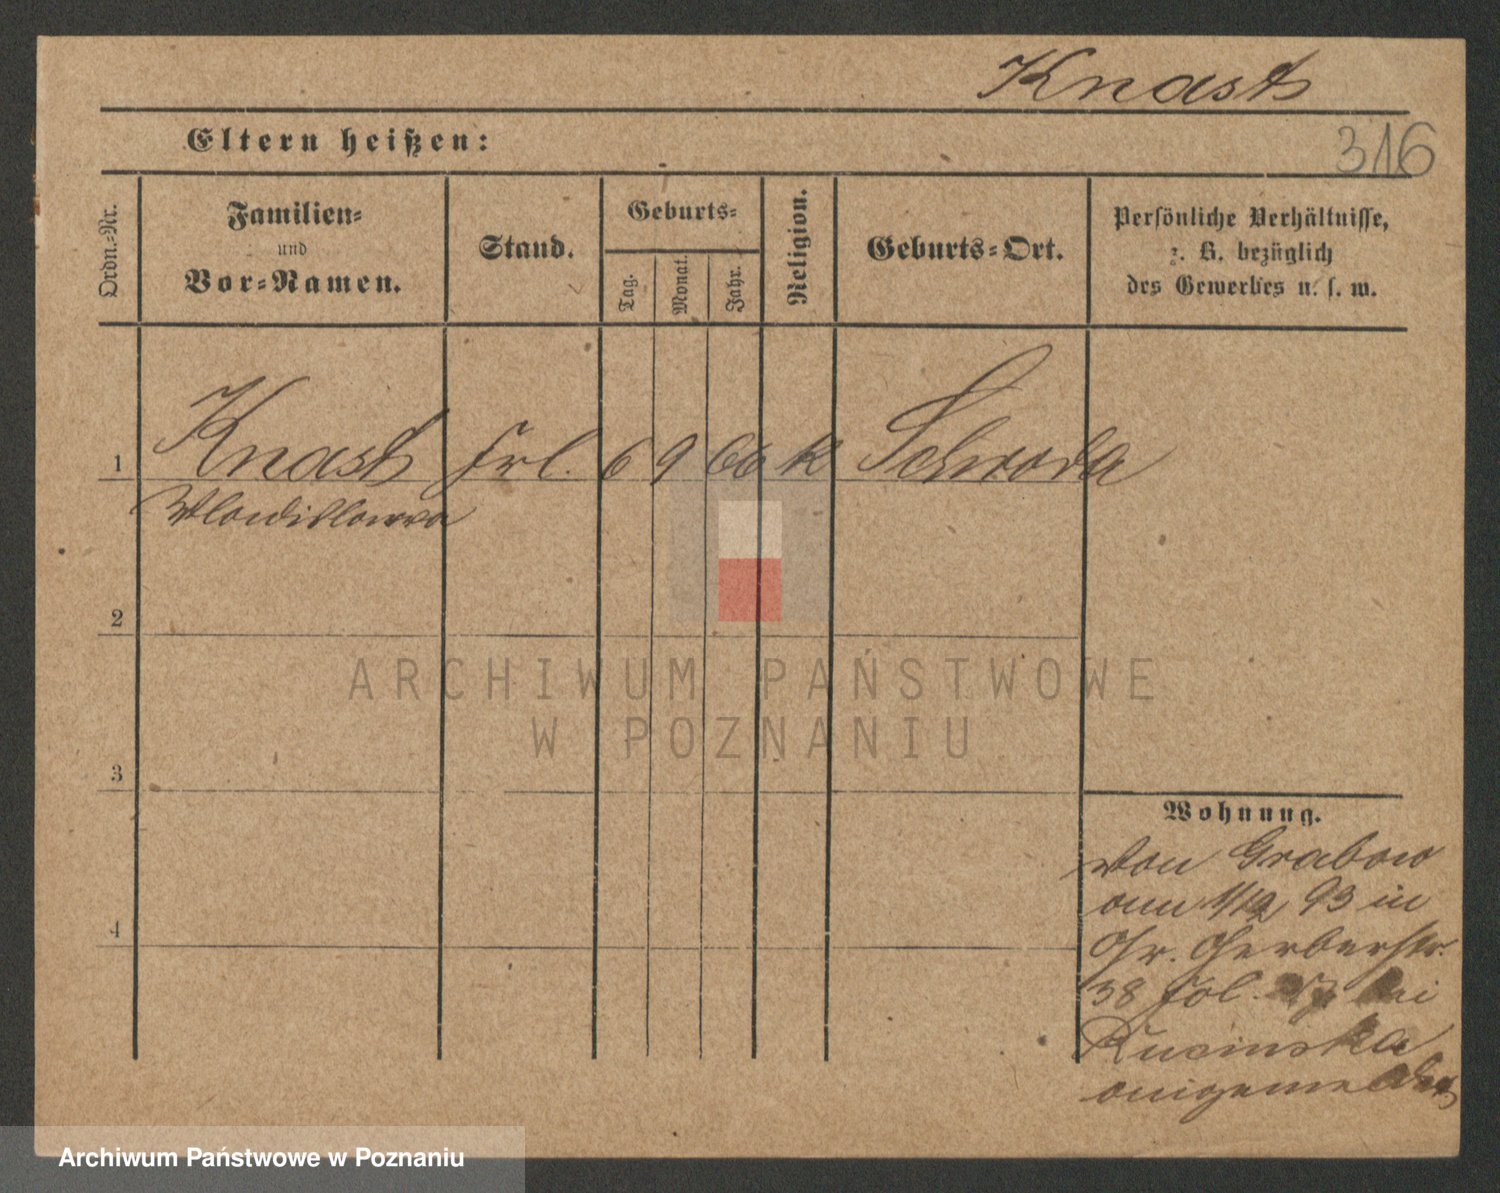 Knast
Eltern heißen:
316
Ordn.-Nr.
Familien-
und
Vor-Namen.
Stand.
Geburts-
Tag.
Monat.
Jahr.
Religion.
Geburts-Ort.
Persönliche Verhältnisse,
z. B. bezüglich
des Gewerbes u. s. w.
1 Knast Frl. 6 9 66 k Schroda
Wladislawa
2
3
4
Wohnung.
Von Grabow
am 1/12 93 in
Gr. Gerberstr.
38 fol. bei
Rucinska
angemeldet
ARCHIWUM PAŃSTWOWE
W POZNANIU
Archiwum Państwowe w Poznaniu